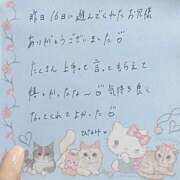 昨日16日に遊んでくれたお兄様
ありがとうございました
たくさん上手って言ってもらえて
嬉しかったな〜気持ち良く
なってくれてよかった